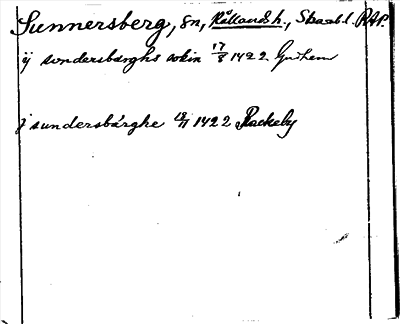 Sunnersberg, sn, Kållands h., Skarab.l. RAP.
ij sondersbærghs sokin 17/8 1422 Gudhem
j sundersbærghe 12/11 1422 Rackeby